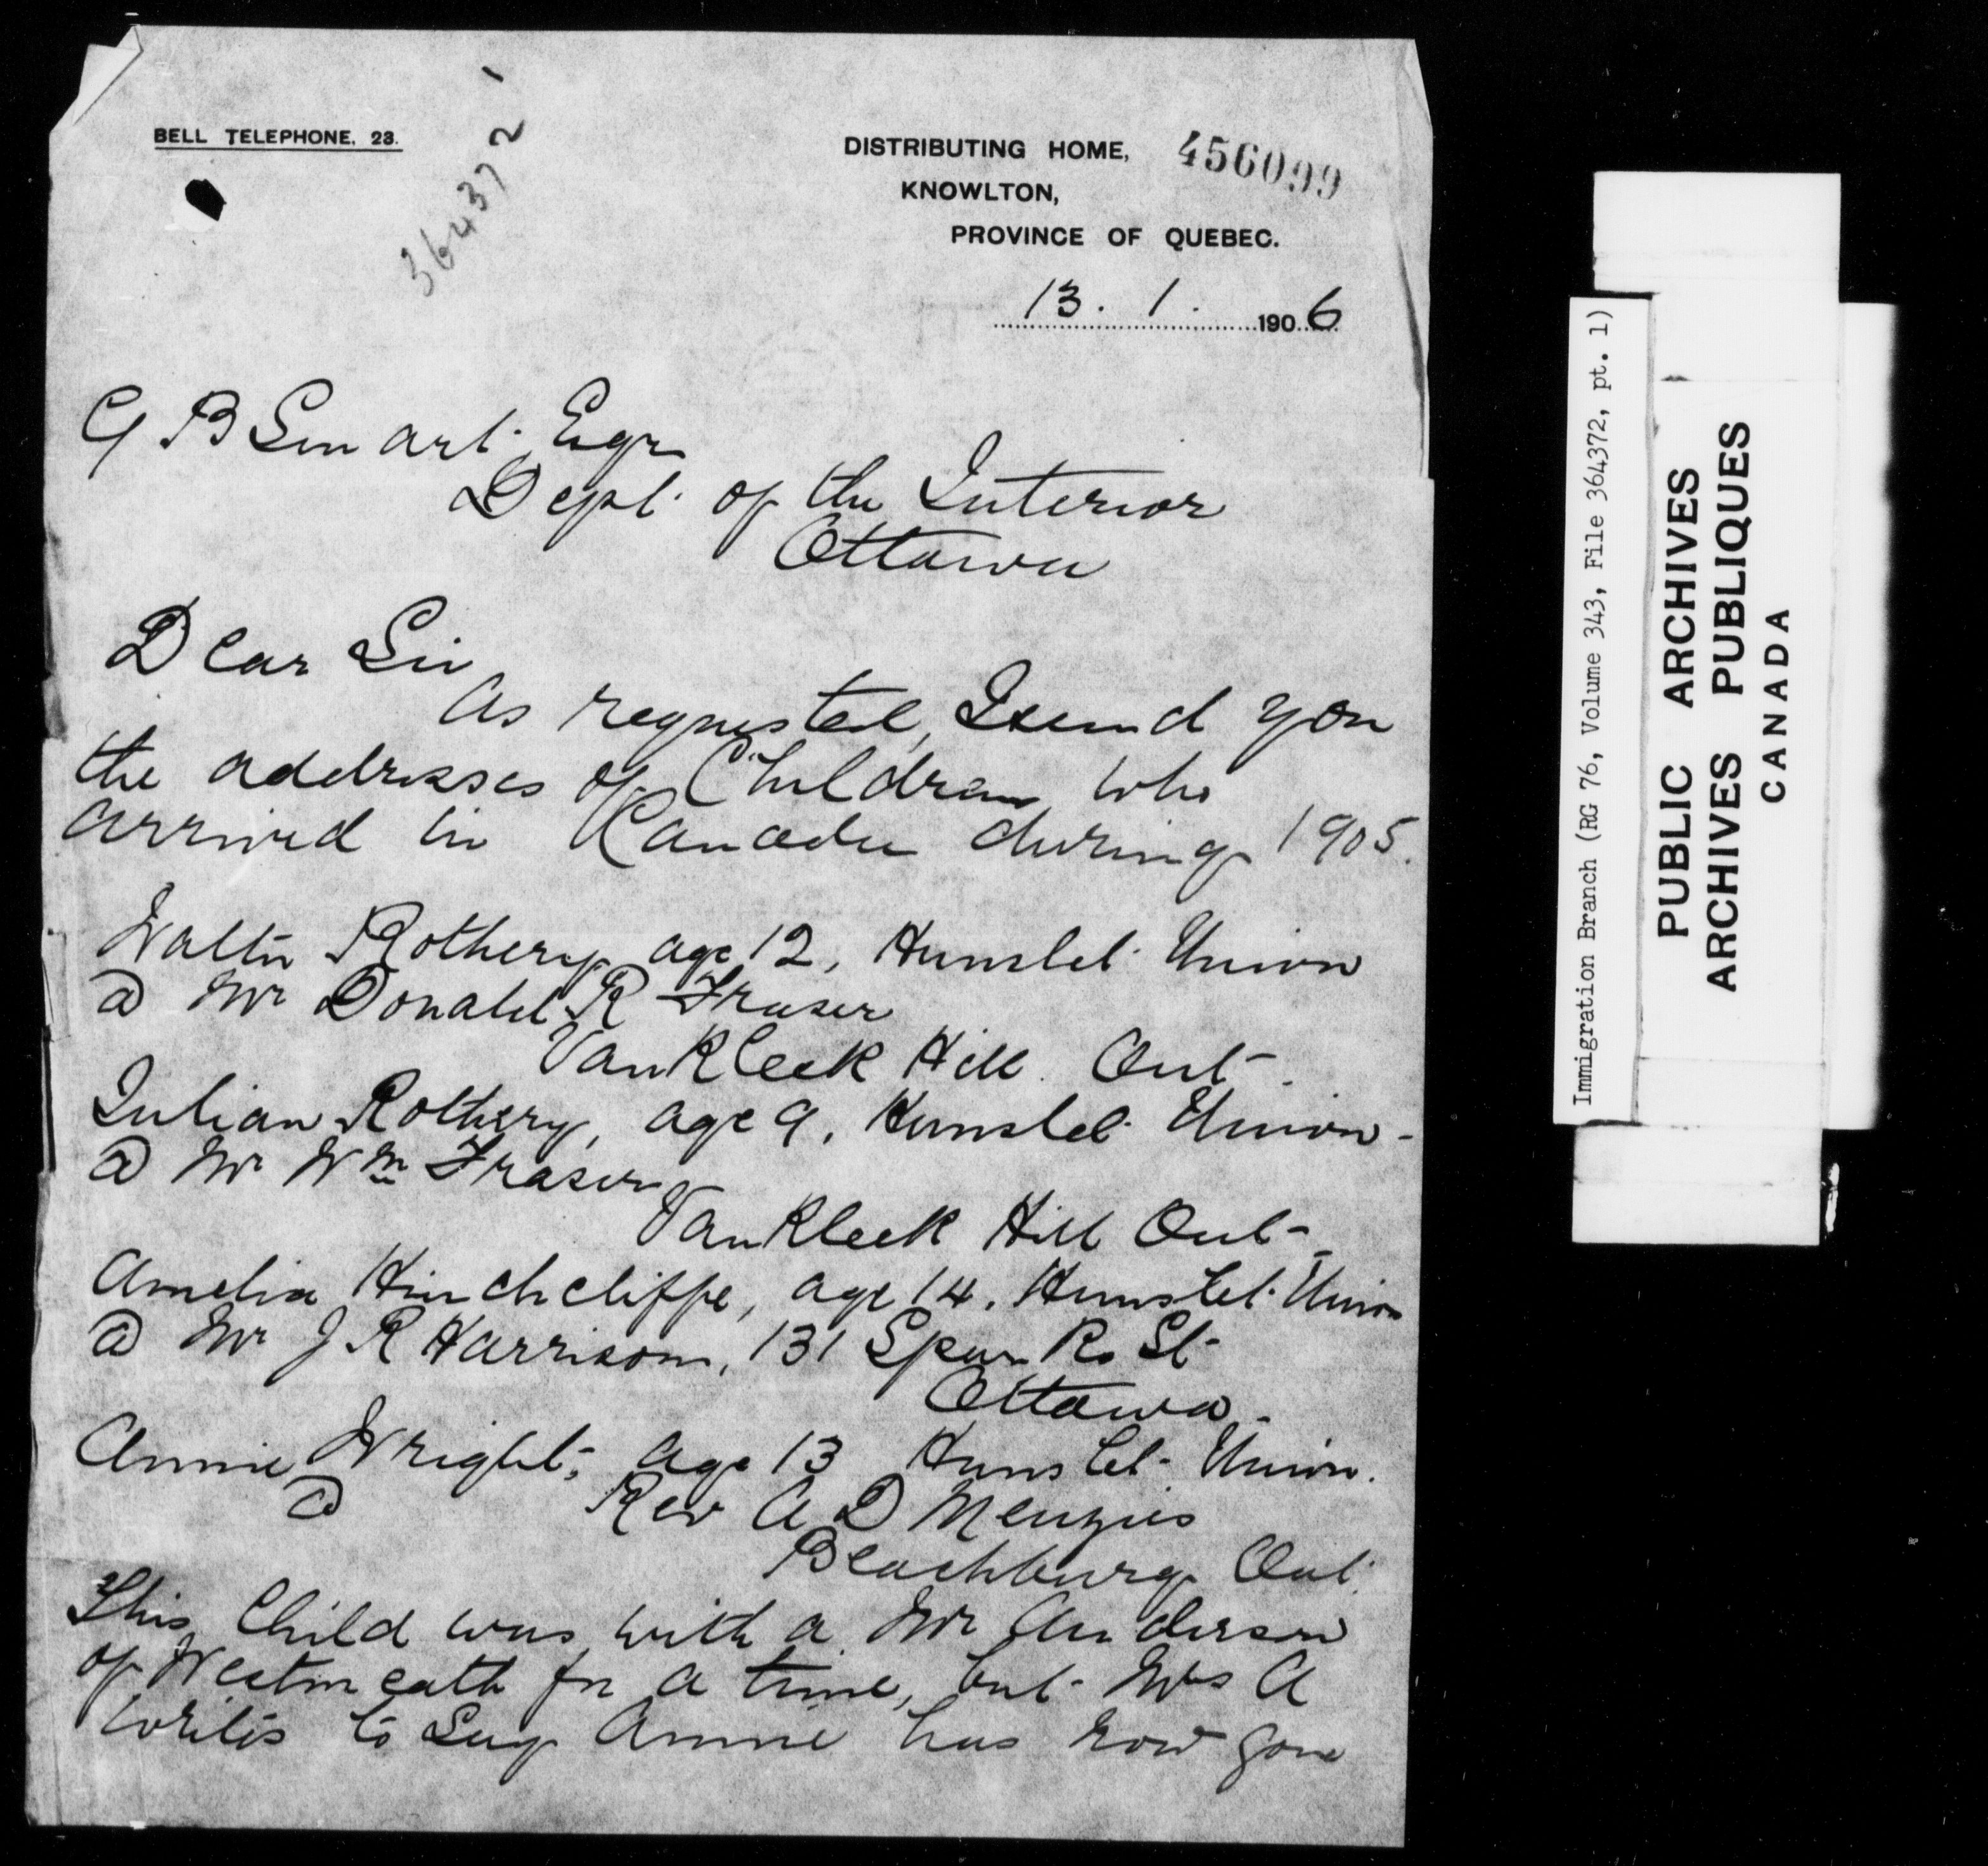 BELL TELEPHONE, 23.
364372
DISTRIBUTING HOME,
456099
KNOWLTON,
PROVINCE OF QUEBEC.
13. 1. 1906
G B Smart Esqr
Dept of the Interior
Ottawa
Dear Sir
As requested, I send you
the addresses of Children who
arrived in Canada during 1905.
Walter Rothery age 12, Hunslet Union
@ Mr Donald R Fraser
VanKleek Hill. Ont-.
Julian Rothery, age 9, Hunslet Union-
@ Mr Wm Fraser
VanKleek Hill Ont-
Amelia Hinchcliffe, age 14, Hunslet Union
@ Mr J R Harrison, 131 Sparks St-
Ottawa.
Annie Wright, age 13 Hunslet- Union.
@ Rev A D Menzies
Beachburg Ont.
This Child was with a Mr Anderson
of Westmeath for a time, but- Mrs A
writes to say Annie has now gone
Immigration Branch (RG 76, Volume 343, File 364372, pt. 1)
PUBLIC ARCHIVES
ARCHIVES PUBLIQUES
CANADA